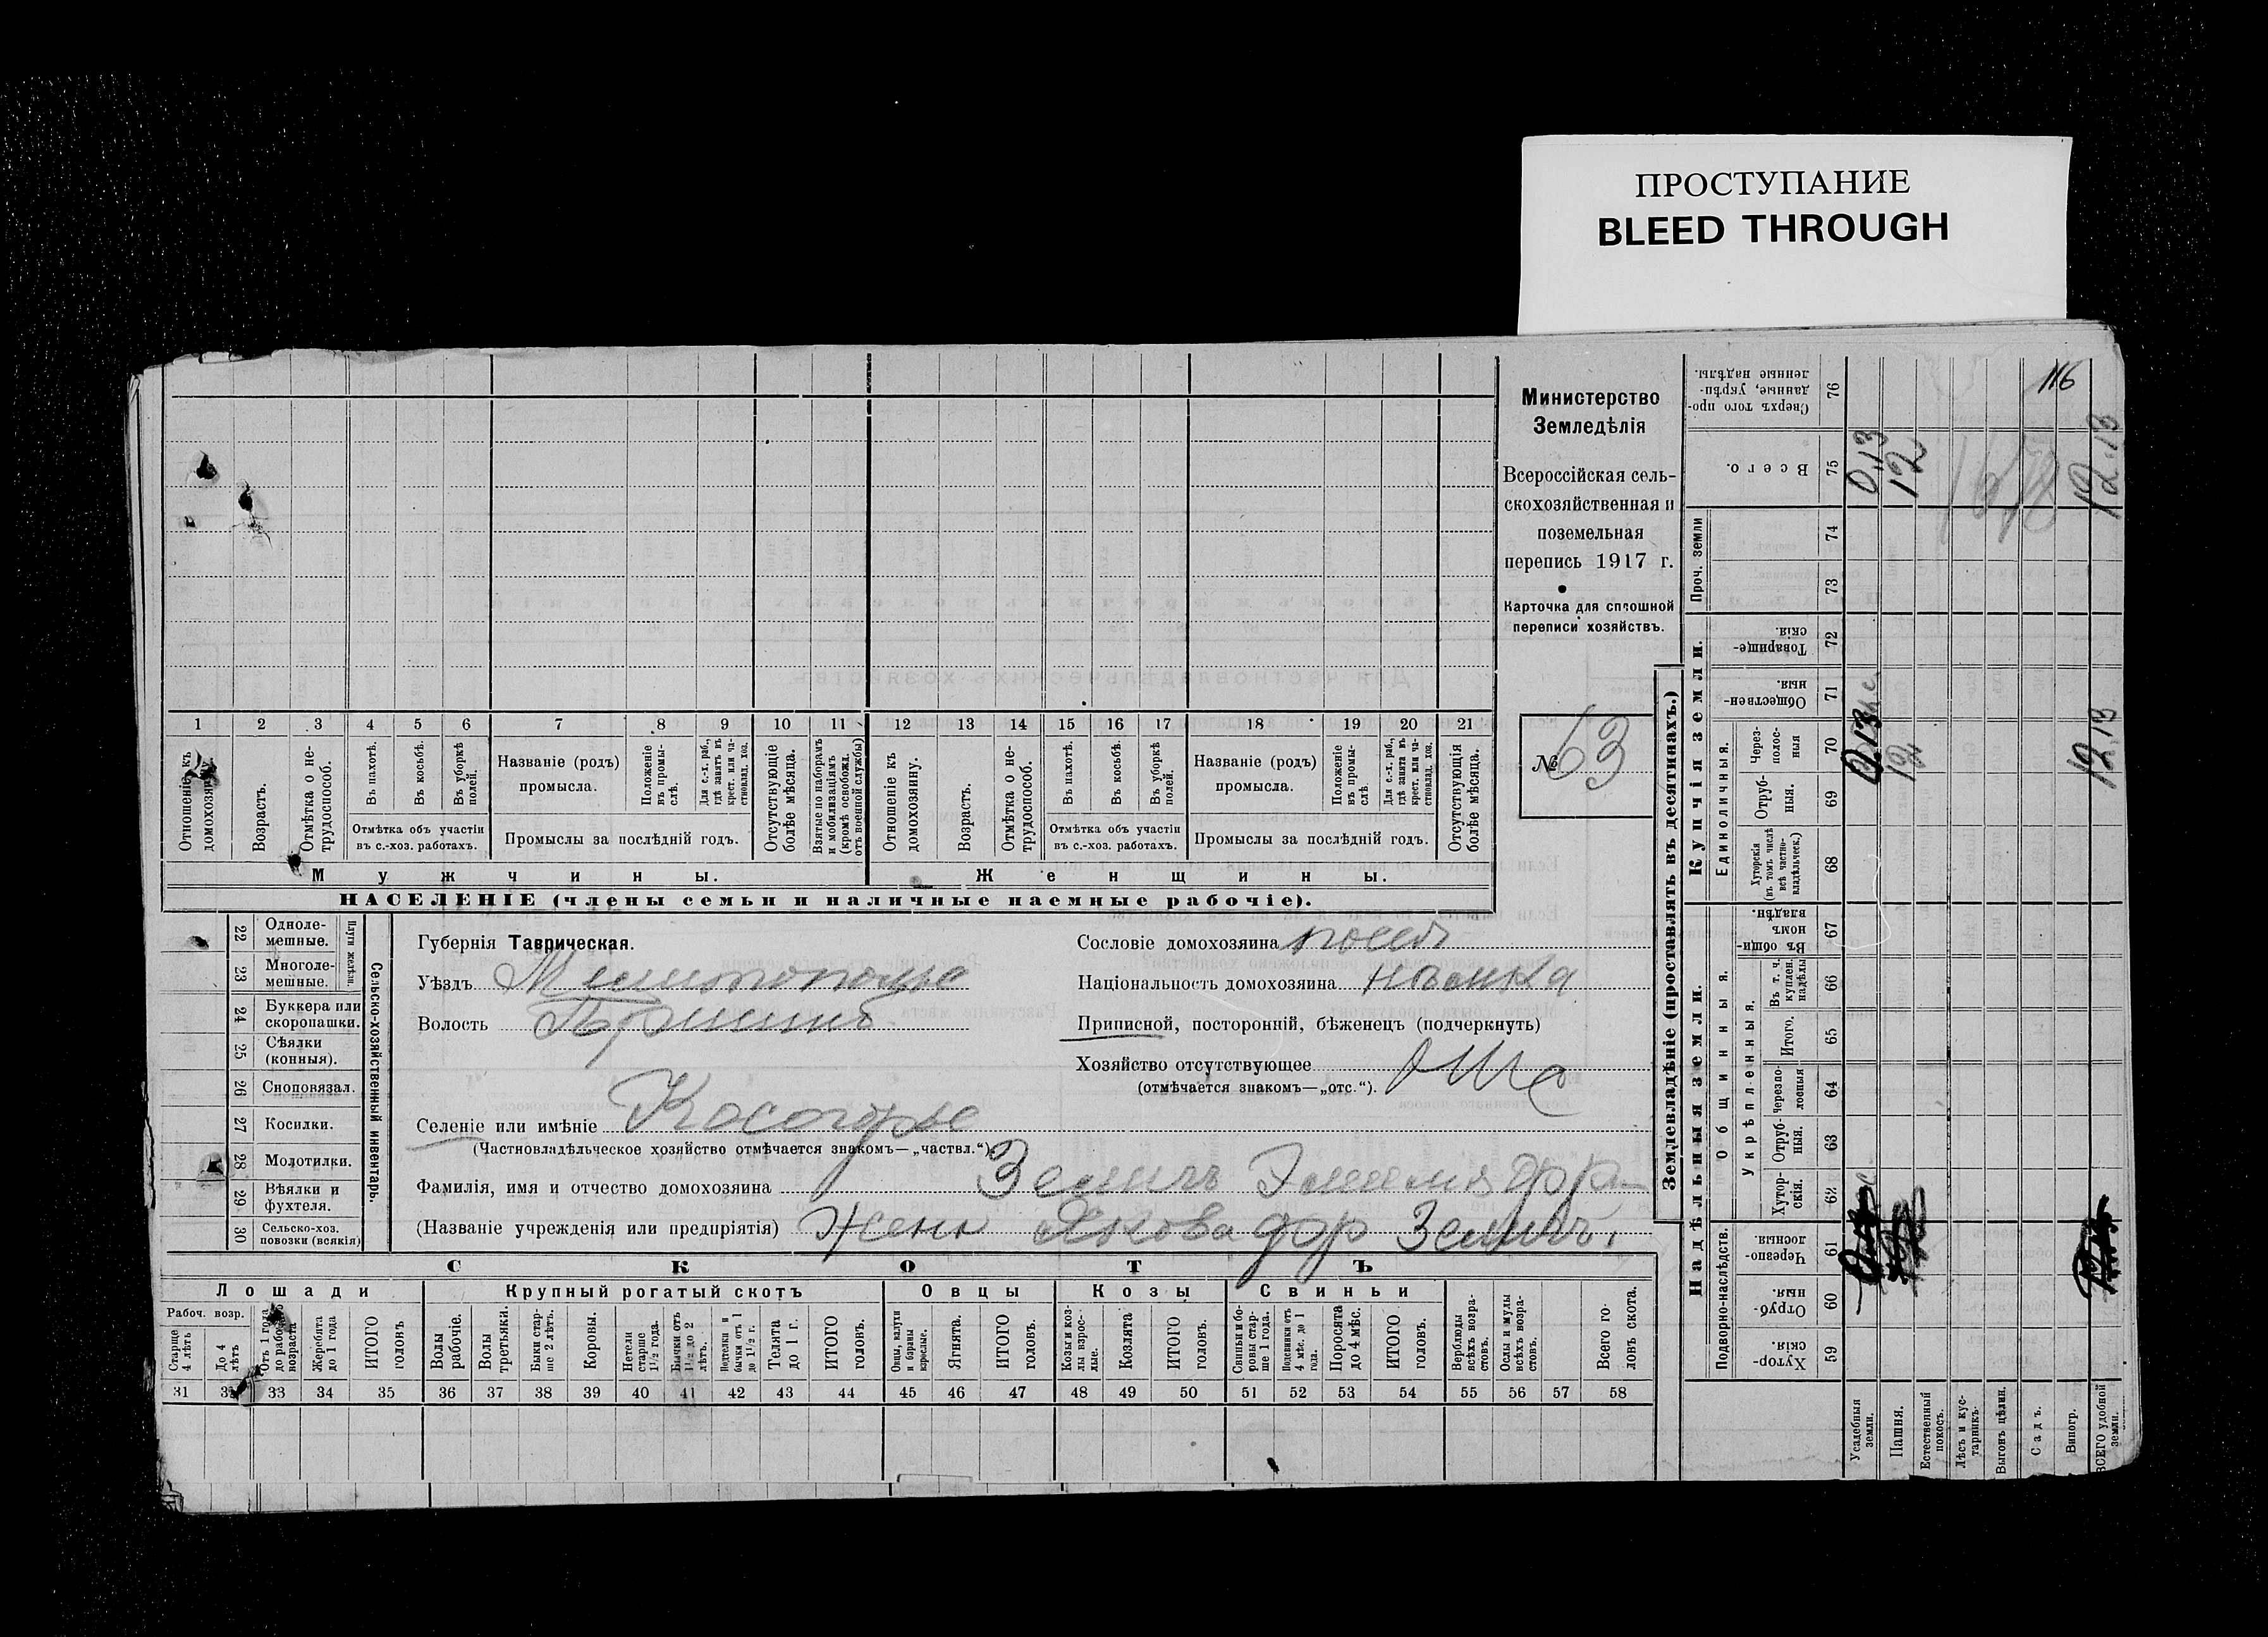 ПРОСТУПАНИЕ
BLEED THROUGH
116
Министерство
Земледѣлія
Всероссійская сель-
скохозяйственная и
поземельная
перепись 1917 г.
Карточка для сплошной
переписи хозяйствъ.
№ 63
1 2 3 4 5 6 7 8 9 10 11 12 13 14 15 16 17 18 19 20 21
Отношеніе къ домохозяину.
Возрастъ.
Отмѣтка о не-трудоспособ.
Въ пахотѣ.
Въ косьбѣ.
Въ уборкѣ полей.
Отмѣтка объ участіи
въ с.-хоз. работахъ.
Названіе (родъ)
промысла.
Положеніе въ промы-слѣ.
Для с.-х. раб., гдѣ занятъ въ крест. или ча-стновлад. хоз.
Промыслы за послѣдній годъ.
Отсутствующіе болѣе мѣсяца.
Взятые по наборамъ и мобилизаціямъ (кромѣ освобожд. отъ военной службы)
Отношеніе къ домохозяину.
Возрастъ.
Отмѣтка о не-трудоспособ.
Въ пахотѣ.
Въ косьбѣ.
Въ уборкѣ полей.
Отмѣтка объ участіи
въ с.-хоз. работахъ.
Названіе (родъ)
промысла.
Положеніе въ промы-слѣ.
Для с.-х. раб., гдѣ занята въ крест. или ча-стновлад. хоз.
Промыслы за послѣдній годъ.
Отсутствующія болѣе мѣсяца.
Мужчины.
Женщины.
НАСЕЛЕНІЕ (члены семьи и наличные наемные рабочіе).
22 Одноле-мешные.
23 Многоле-мешные.
Плуги желѣзн.
24 Буккера или скоропашки.
25 Сѣялки (конныя).
26 Сноповязал.
27 Косилки.
28 Молотилки.
29 Вѣялки и фухтеля.
30 Сельско-хоз. повозки (всякія)
Сельско-хозяйственный инвентарь.
Губернія Таврическая.
Уѣздъ
Волость
Селеніе или имѣніе Косогорье
(Частновладѣльческое хозяйство отмѣчается знакомъ—„частвл.“)
Фамилія, имя и отчество домохозяина
(Названіе учрежденія или предпріятія)
Сословіе домохозяина
Національность домохозяина
Приписной, посторонній, бѣженецъ (подчеркнуть)
Хозяйство отсутствующее
(отмѣчается знакомъ—„отс.“).
СКОТЪ
Лошади
Рабоч. возр.
Старше 4 лѣтъ
До 4 лѣтъ
Отъ 1 года до рабоч. возраста
Жеребята до 1 года
ИТОГО головъ
Крупный рогатый скотъ
Волы рабочіе.
Волы третьяки.
Быки стар-ше 2 лѣтъ.
Коровы.
Нетели старше 1½ года.
Бычки отъ 1½ до 2 лѣтъ.
Подтелки и бычки отъ 1 до 1½ г.
Телята до 1 г.
ИТОГО головъ.
Овцы
Овцы, валухи и бараны взрослые.
Ягнята.
ИТОГО головъ.
Козы
Козы и коз-лы взрос-лые.
Козлята
ИТОГО головъ.
Свиньи
Свиньи и бо-ровы стар-ше 1 года.
Подсвинки отъ 4 мѣс. до 1 года.
Поросята до 4 мѣс.
ИТОГО головъ.
Верблюды всѣхъ возра-стовъ.
Ослы и мулы всѣхъ возра-стовъ.
Всего го-ловъ скота.
31 32 33 34 35 36 37 38 39 40 41 42 43 44 45 46 47 48 49 50 51 52 53 54 55 56 57 58
Землевладѣніе (проставлять въ десятинахъ.)
Надѣльныя земли.
Купчія земли.
Проч. земли
Подворно-наслѣдств.
Общинныя.
Укрѣпленныя.
Единоличныя.
Хутор-скія. 59
Отруб-ныя. 60
Черезпо-лосныя. 61
Хутор-скія. 62
Отруб-ныя. 63
Черезпо-лосныя 64
Итого. 65
Въ т. ч. куплен. надѣлы 66
Въ общи-номъ владѣн. 67
Хуторскія (въ томъ числѣ всѣ частно-владѣльческ.) 68
Отруб-ныя. 69
Через-полос-ныя 70
Обществен-ныя. 71
Товарище-скія. 72
73
74
Всего. 75
Сверхъ того про-данные, укрѣп-ленные надѣлы. 76
Усадебныя земли. 0,13 0,13
Пашня. 12 12
Естественный покосъ.
Лѣсъ и кус-тарникъ.
Выгонъ цѣлин.
Садъ.
Виногр.
ВСЕГО удобной земли. 12,13 12,13